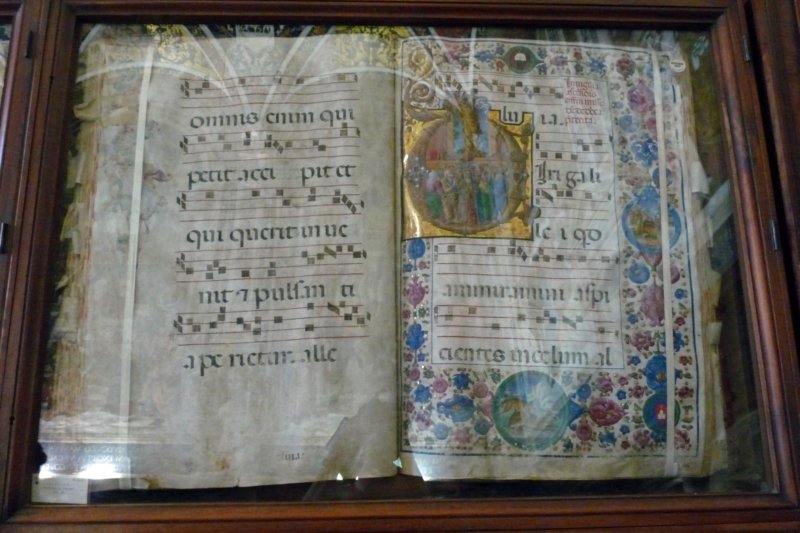 omnis enim qui
petit acci pit et
qui querit in ue
nit ⁊ pulsan ti
ape rietur. alle
lu ia.
Iri gali
le i qd
ammiramini aspi
cientes in celum al